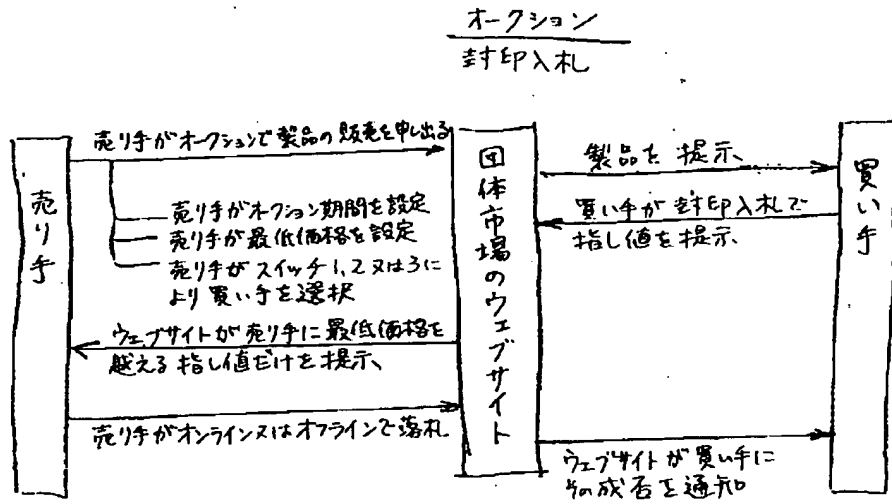 オークション
封印入札
売り手がオークションで製品の販売を申し出る
売り手がオークション期間を設定
売り手が最低価格を設定
売り手がスイッチ1、2又は3に
より買い手を選択
ウェブサイトが売り手に最低価格を
越える指し値だけを提示、
売り手がオンライン又はオフラインで落札
売り手
団体市場のウェブサイト
製品を提示、
買い手が封印入札で
指し値を提示、
ウェブサイトが買い手に
その成否を通知
買い手